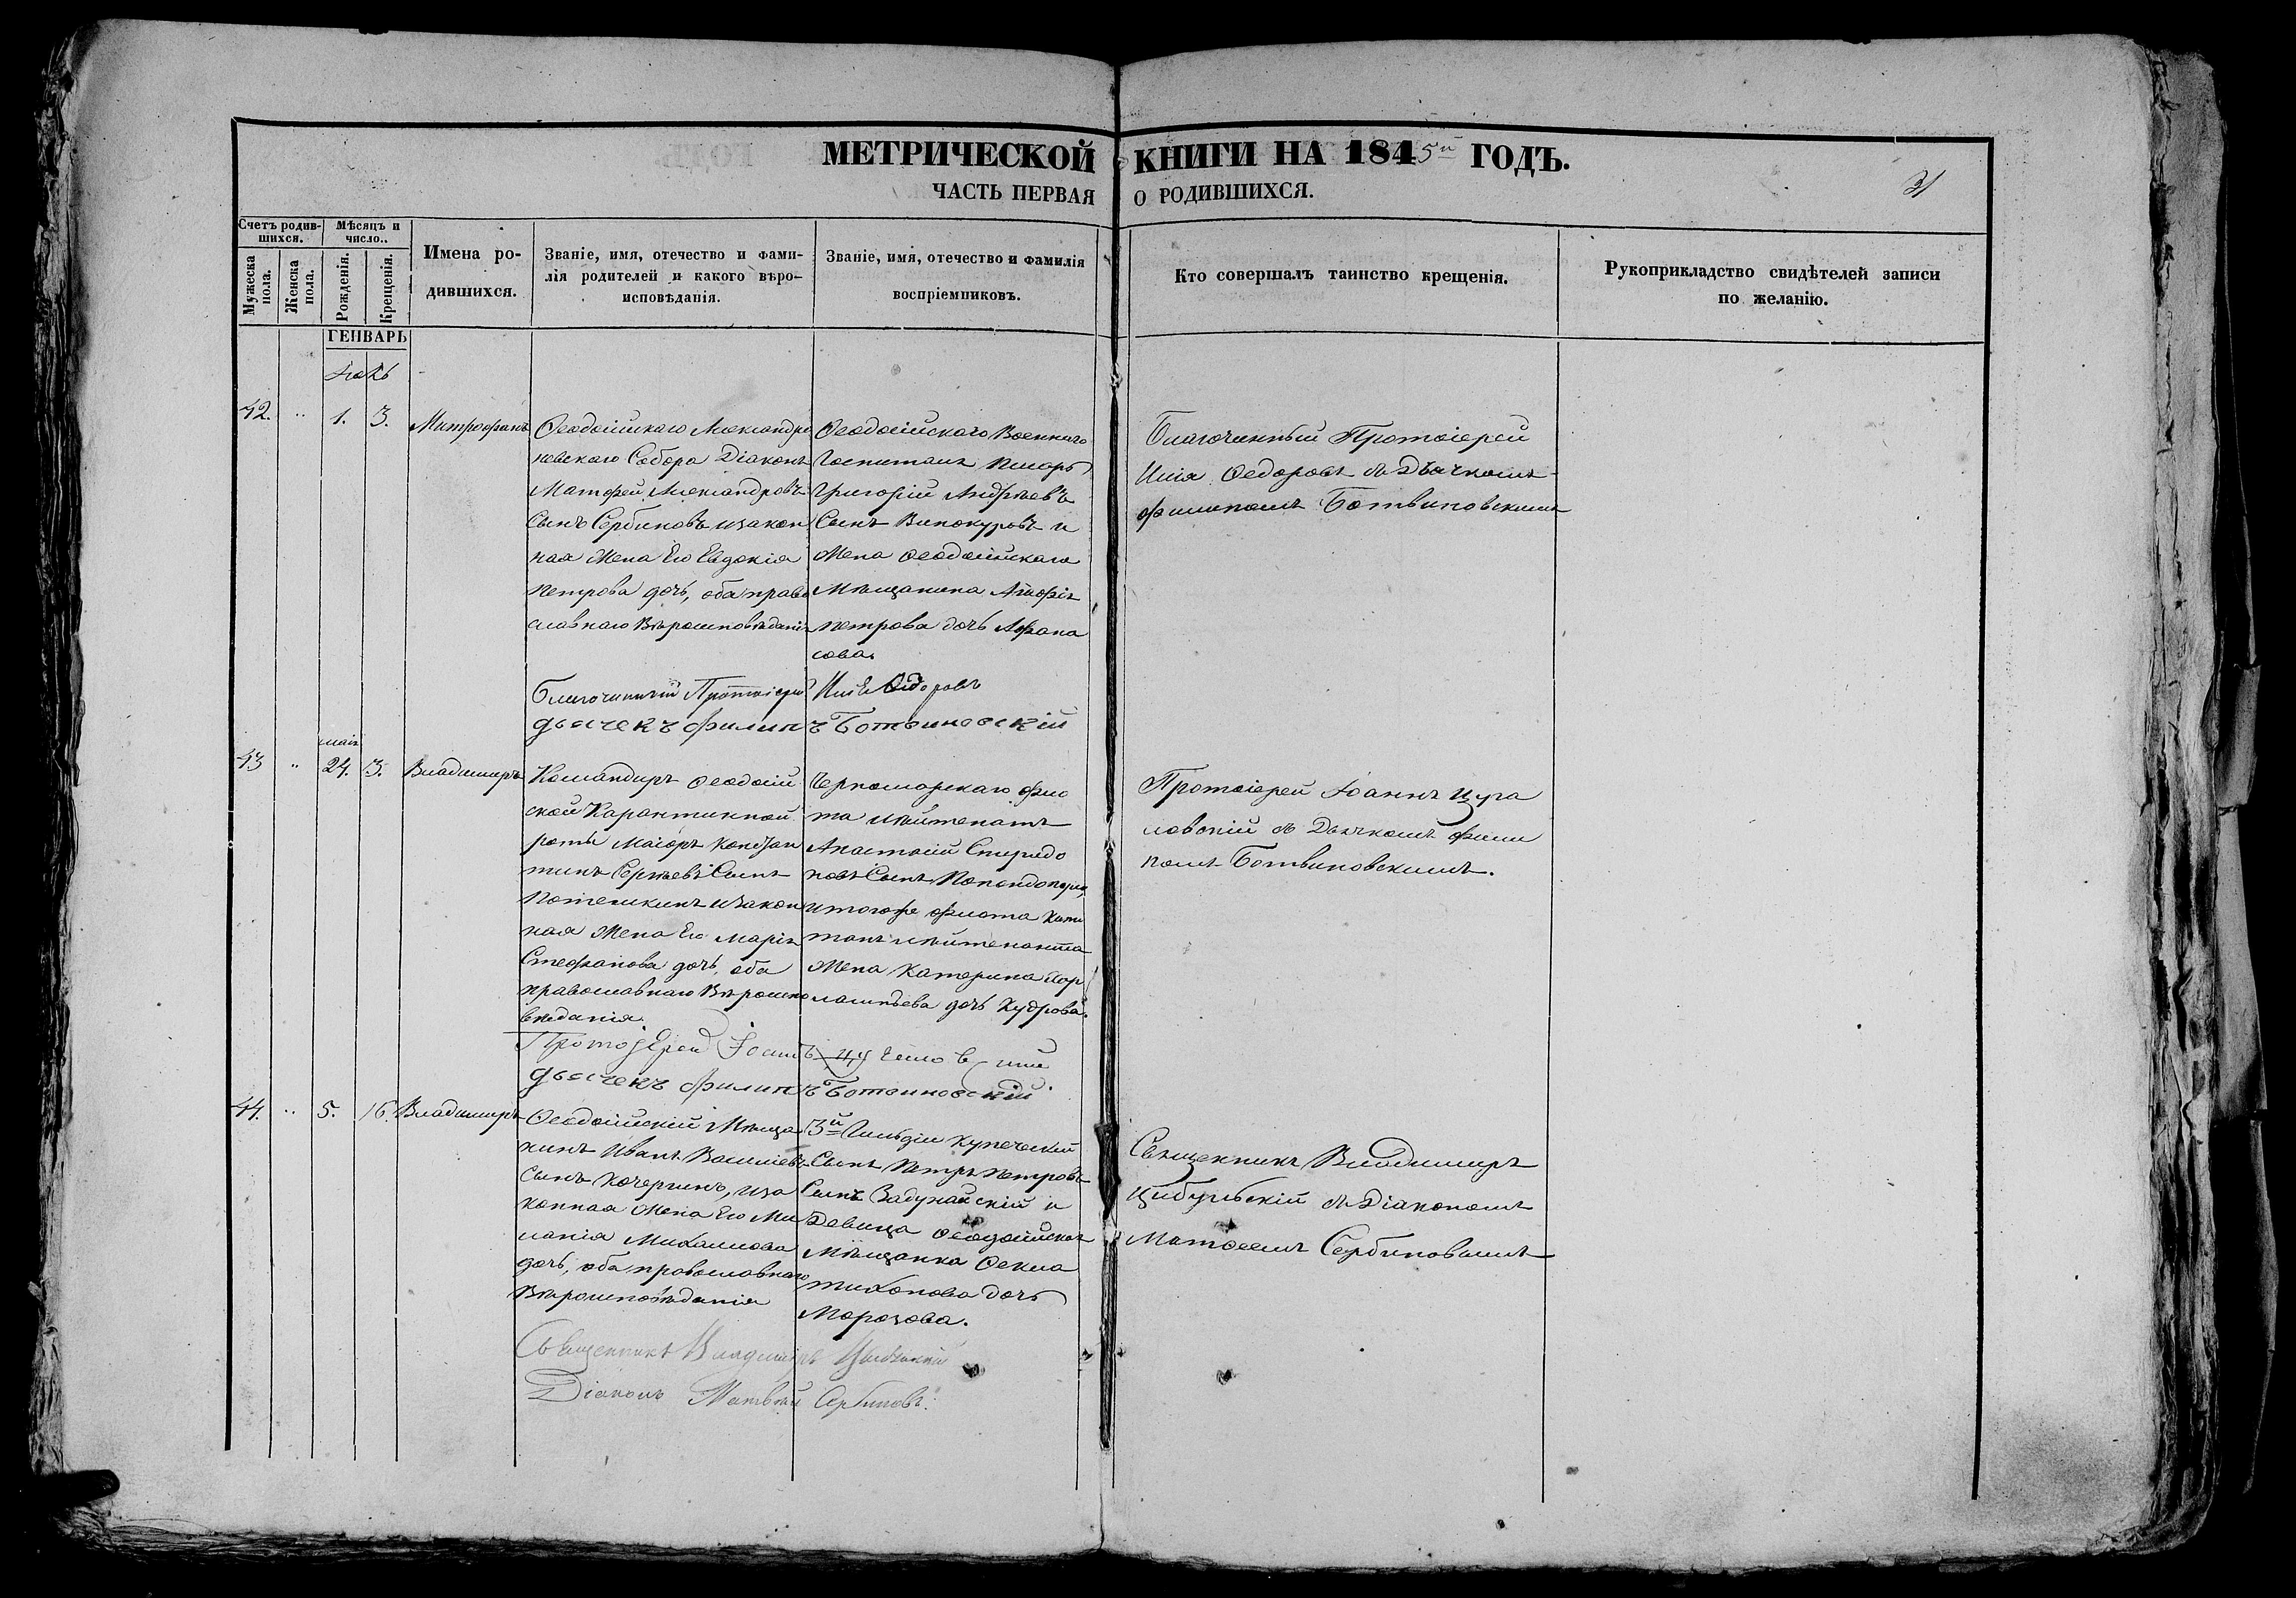 МЕТРИЧЕСКОЙ КНИГИ НА 1845й ГОДЪ.
ЧАСТЬ ПЕРВАЯ О РОДИВШИХСЯ.
31
Счетъ родив-
шихся.
Мужеска пола.
Женска пола.
Мѣсяцъ и
число..
Рожденія.
Крещенія.
Имена ро-
дившихся.
Званіе, имя, отечество и фами-
лія родителей и какого вѣро-
исповѣданія.
Званіе, имя, отечество и фамилія
воспріемниковъ.
Кто совершалъ таинство крещенія.
Рукоприкладство свидѣтелей записи
по желанію.
ГЕНВАРЬ
42. " 1. 3. Митрофанъ
Ѳеодосійскаго Александро
невскаго Собора Діаконъ
Матфей Александровъ
Сынъ Сербиновъ изакон
ная Жена Его Евдокія
Петрова дочь, оба право
славнаго Вѣроисповѣданія
Ѳеодосійскаго Военнаго
Госпиталя Писарь
Григорій Андрѣевъ
Сынъ Винокуровъ и
Жена Ѳеодосійскаго
Мѣщанина
Петрова дочь Афана
сова.
Благочинный Протоіерей
Илія Ѳедоровъ съ Дьячкомъ
Филипомъ Ботвиновскимъ
Благочинный Протоіерей Илія Ѳедоровъ
дьячекъ Филипъ Ботвиновскій
43 " маія 24. 3. Владимиръ
Командиръ Ѳеодосій
ской Карантинной
роты Маіоръ Констан
тинъ Сергѣевъ Сынъ
Потемкинъ изакон
ная Жена Его Марія
Стефанова дочь, оба
православнаго Вѣроиспо
вѣданія.
Черноморскаго фло
та Лѣйтенантъ
Анастасій Спиридо
новъ Сынъ
итогоже флота Капи
танъ Лѣйтенанта
Жена Катерина Хар
лампѣева дочь Кудрова.
Протоіерей Іоаннъ Цуга
ловскій съ Дьячкомъ Фили
помъ Ботвиновскимъ.
Протоіерей Іоаннъ
дьячекъ Филипъ Ботвиновскій
44. " 5. 16. Владимиръ
Ѳеодосійскій Мѣща
нинъ Иванъ Васильевъ
Сынъ Кочергинъ, иза
конная Жена Его Ми
ланія Михаилова
дочь, оба православнаго
Вѣроисповѣданія
3й Гильдіи Купеческій
Сынъ Петръ Петровъ
Сынъ Задунайскій и
Девица Ѳеодосійская
Мѣщанка Ѳекла
Тихонова дочь
Морозова.
Священникъ Владимиръ
Цибульскій съ Діакономъ
Матѳеемъ Сербиновымъ
Священникъ Владимиръ Цибульскій
Діаконъ Матвѣй Сербиновъ.